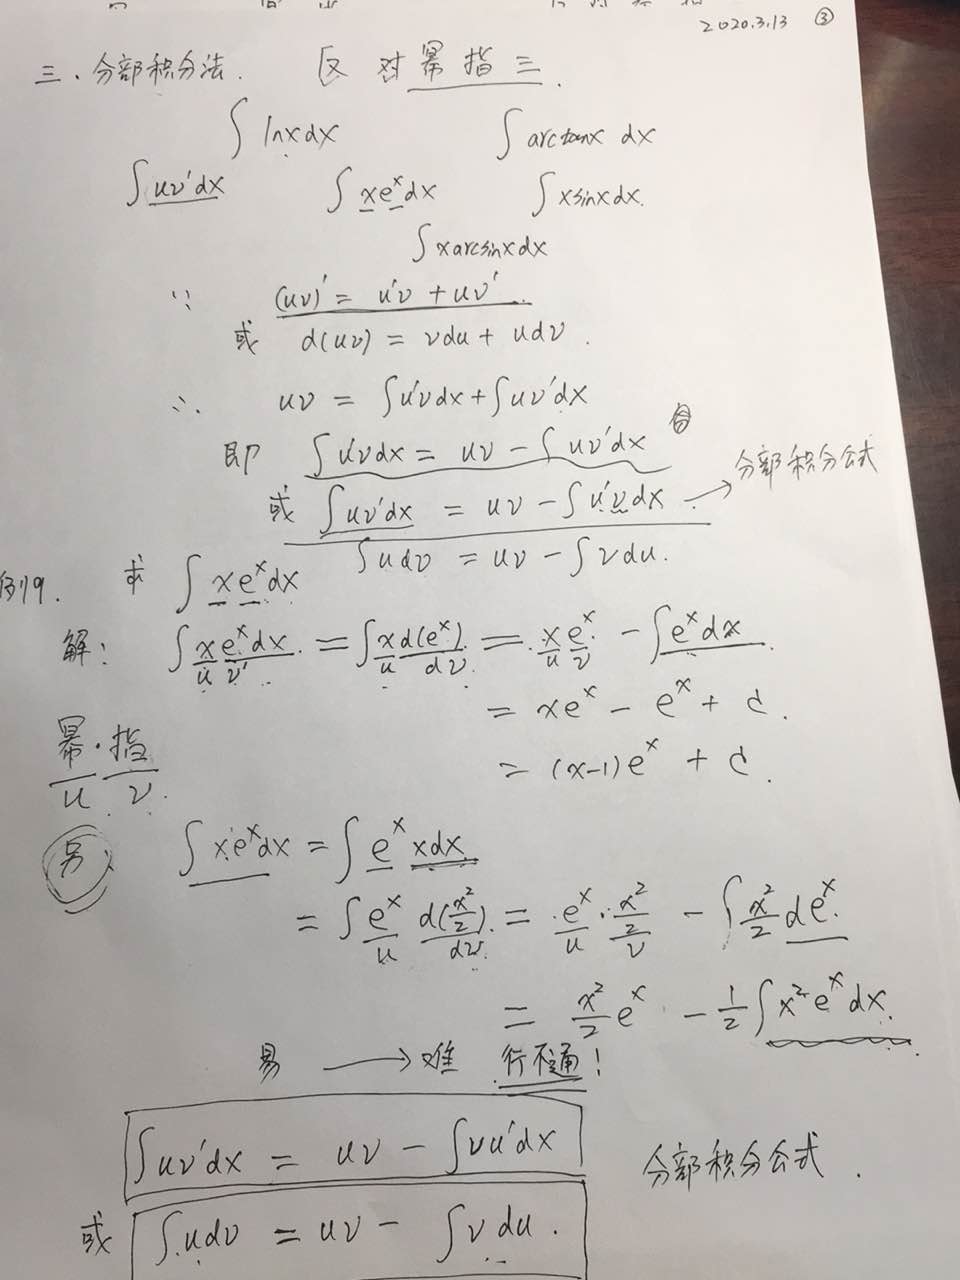 2020.3.13 ③
三、分部积分法. 反 对 幂 指 三.
∫ lnx dx ∫ arctanx dx
∫ uv'dx ∫ xe^x dx ∫ xsinx dx.
∫ x arcsinx dx
∵ (uv)' = u'v + uv'
或 d(uv) = vdu + udv.
∴ uv = ∫u'vdx + ∫uv'dx
即 ∫u'vdx = uv - ∫uv'dx
或 ∫uv'dx = uv - ∫u'vdx → 分部积分公式
∫udv = uv - ∫vdu.
例9. 求 ∫ xe^x dx
解: ∫ x e^x dx = ∫ x d(e^x) = x e^x - ∫ e^x dx
u v' u dv u v
= xe^x - e^x + C.
= (x-1)e^x + C.
幂·指
u v
另 ∫ xe^x dx = ∫ e^x xdx
= ∫ e^x d(x²/2) = e^x · x²/2 - ∫ x²/2 de^x
u dv u v
= x²/2 e^x - 1/2 ∫ x² e^x dx.
易 → 难 行不通!
∫uv'dx = uv - ∫vu'dx
分部积分公式.
或 ∫udv = uv - ∫vdu.